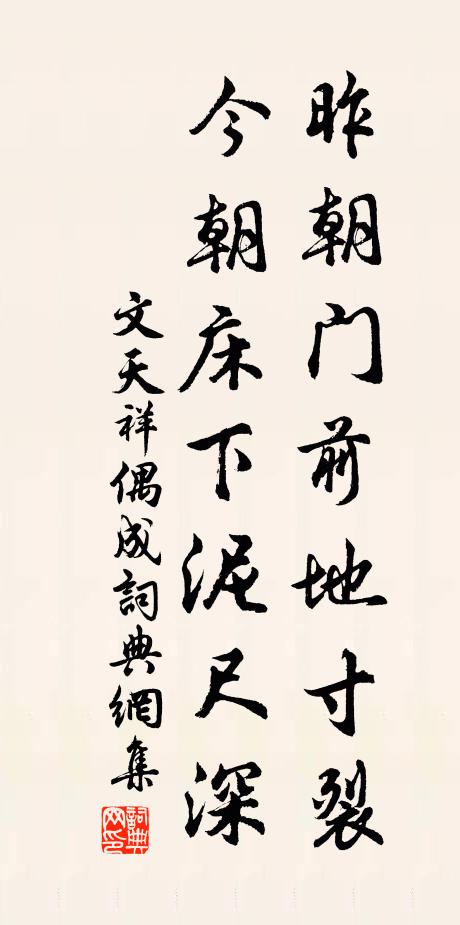 昨朝门前地寸裂
今朝床下泥尺深
文天祥偶成詞典網集
詞典網印